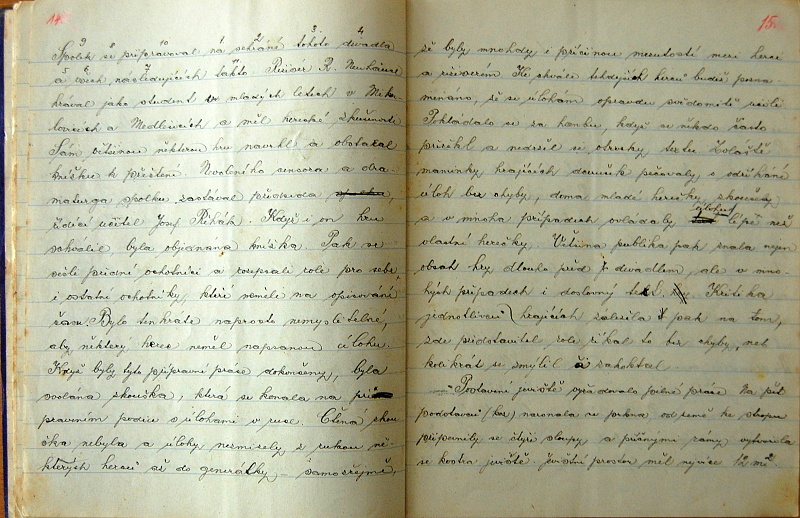 14.
9 10 2 3 4
Spolek se připravoval na sehrání tohoto divadla
5 6 7
a všech následujících takto. Režisér R. Neuhäusel
hrával jako student v mladých letech v Miku-
lovicích a Medlovicích a měl herecké zkušenosti
Sám většinou některou hru navrhl a obstaral
knížku k přečtení. Nevoleného censora a dra-
maturga spolku zastával předseda
řídící učitel Josef Řihák. Když on hru
schválil byla objednána knížka. Pak se
sešli přední ochotníci a rozepsali role pro sebe,
i ostatní ochotníky, kteří neměli na opisování
času. Bylo tenkráte naprosto nemyslitelné,
aby některý herec neměl napsanou úlohu.
Když byly tyto přípravné práce dokončeny, byla
svolána zkouška, která se konala na při-
praveném podiu s úlohami v ruce. Čtená zkou
ška nebyla a úlohy nezmizely z rukou ně-
kterých herců až do generálky – samozřejmě,
15.
že byly mnohdy i příčinou mrzutostí mezi herci
a režisérem. Ke chvále tehdejších herců budiž pozna-
menáno, že se úlohám opravdu svědomitě učili
Pokládalo se za hanbu, když se někdo často
přeřekl a nedržel se otrocky textu. Zvláště
maminky hrajících dcerušek pečovaly o sdrhávání
úloh bez chyby, doma mladé herečky zkoušely
a v mnoha případech ovládaly úlohu lépe než
vlastní herečky. Většina publika pak znala nejen
obsah hry dlouho před divadlem, ale v mno-
hých případech i doslovný text. Kritika
jednotlivců hrajících záležela pak na tom,
zda představitel role říkal to bez chyby, neb
kolikrát se zmýlil či zakoktal.
– Postavení jeviště vyžadovalo pilné práce. Na pět
podstavců (koz) narovnala se prkna od země ke stropu
připevnily se čtyři sloupy, a příčnými rámy vytvořila
se kostra jeviště. Jevištní prostor měl nejvíce 12 m².